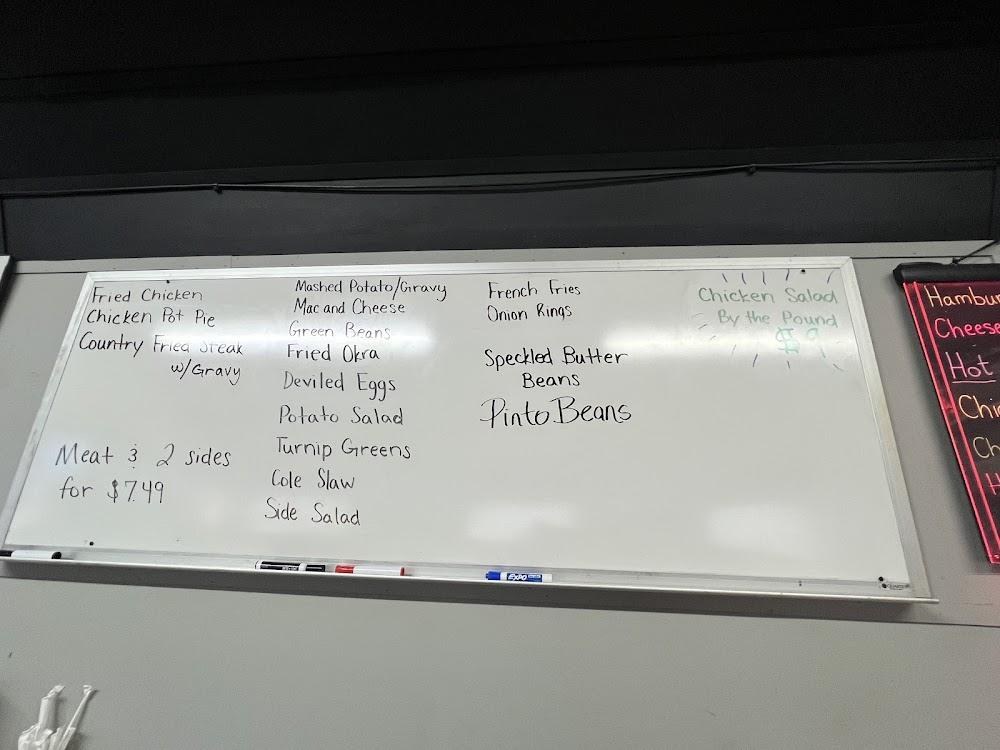 Fried Chicken
Chicken Pot Pie
Country Fried Steak
w/Gravy
Meat & 2 sides
for $7.49
Mashed Potato/Gravy
Mac and Cheese
Green Beans
Fried Okra
Deviled Eggs
Potato Salad
Turnip Greens
Cole Slaw
Side Salad
French Fries
Onion Rings
Speckled Butter
Beans
Pinto Beans
Chicken Salad
By the Pound
$9
EXPO
Hambur
Cheese
Hot
Chic
Ch
H